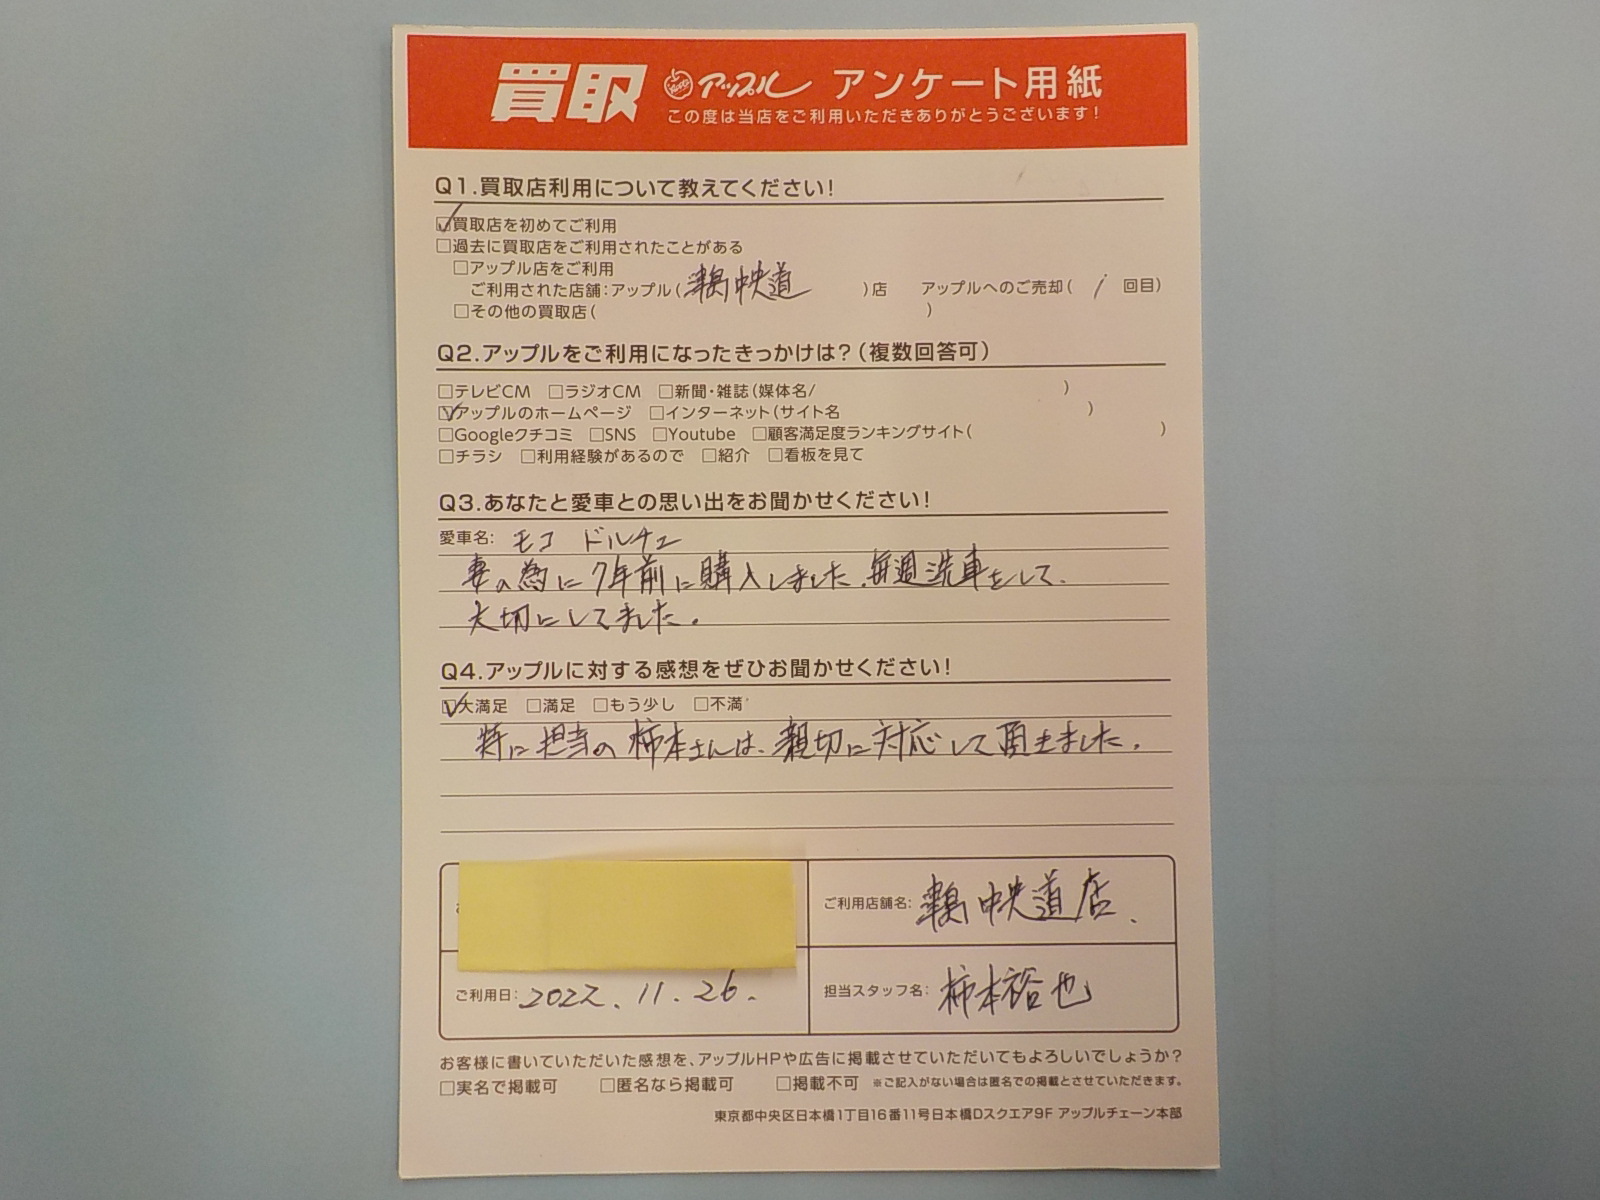 買取 アップル アンケート用紙
この度は当店をご利用いただきありがとうございます!
Q1.買取店利用について教えてください!
□買取店を初めてご利用
□過去に買取店をご利用されたことがある
□アップル店をご利用
ご利用された店舗:アップル( 中央道 )店 アップルへのご売却( 1 回目)
□その他の買取店( )
Q2.アップルをご利用になったきっかけは?(複数回答可)
□テレビCM □ラジオCM □新聞・雑誌(媒体名/ )
□アップルのホームページ □インターネット(サイト名 )
□Googleクチコミ □SNS □Youtube □顧客満足度ランキングサイト( )
□チラシ □利用経験があるので □紹介 □看板を見て
Q3.あなたと愛車との思い出をお聞かせください!
愛車名: モコ ドルチェ
妻の為に7年前に購入しました.毎週洗車をして.
大切にしてました.
Q4.アップルに対する感想をぜひお聞かせください!
□大満足 □満足 □もう少し □不満
特に担当の柿本さんは、親切に対応して頂きました.
ご利用店舗名: 中央道店.
ご利用日: 2022.11.26.
担当スタッフ名: 柿本裕也
お客様に書いていただいた感想を、アップルHPや広告に掲載させていただいてもよろしいでしょうか?
□実名で掲載可 □匿名なら掲載可 □掲載不可 ※ご記入がない場合は匿名での掲載とさせていただきます。
東京都中央区日本橋1丁目16番11号日本橋Dスクエア9F アップルチェーン本部